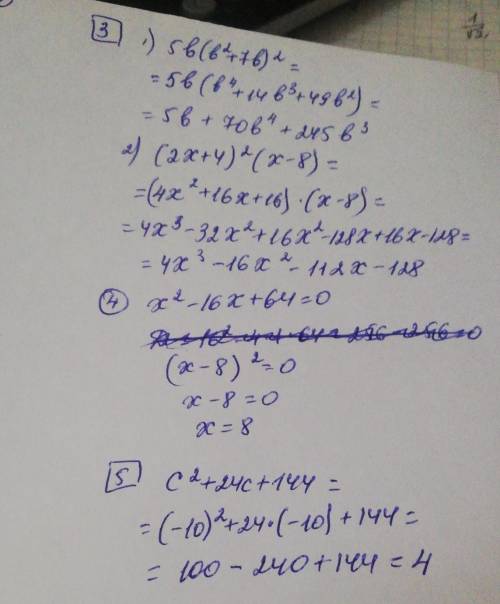 1/√3
3 1) 5b(b²+7b)²=
=5b(b⁴+14b³+49b²)=
=5b+70b⁴+245b³
2) (2x+4)²(x-8)=
=(4x²+16x+16)·(x-8)=
=4x³-32x²+16x²-128x+16x-128=
=4x³-16x²-112x-128
4 x²-16x+64=0
(x-8)²=0
x-8=0
x=8
5 c²+24c+144=
=(-10)²+24·(-10)+144=
=100-240+144=4